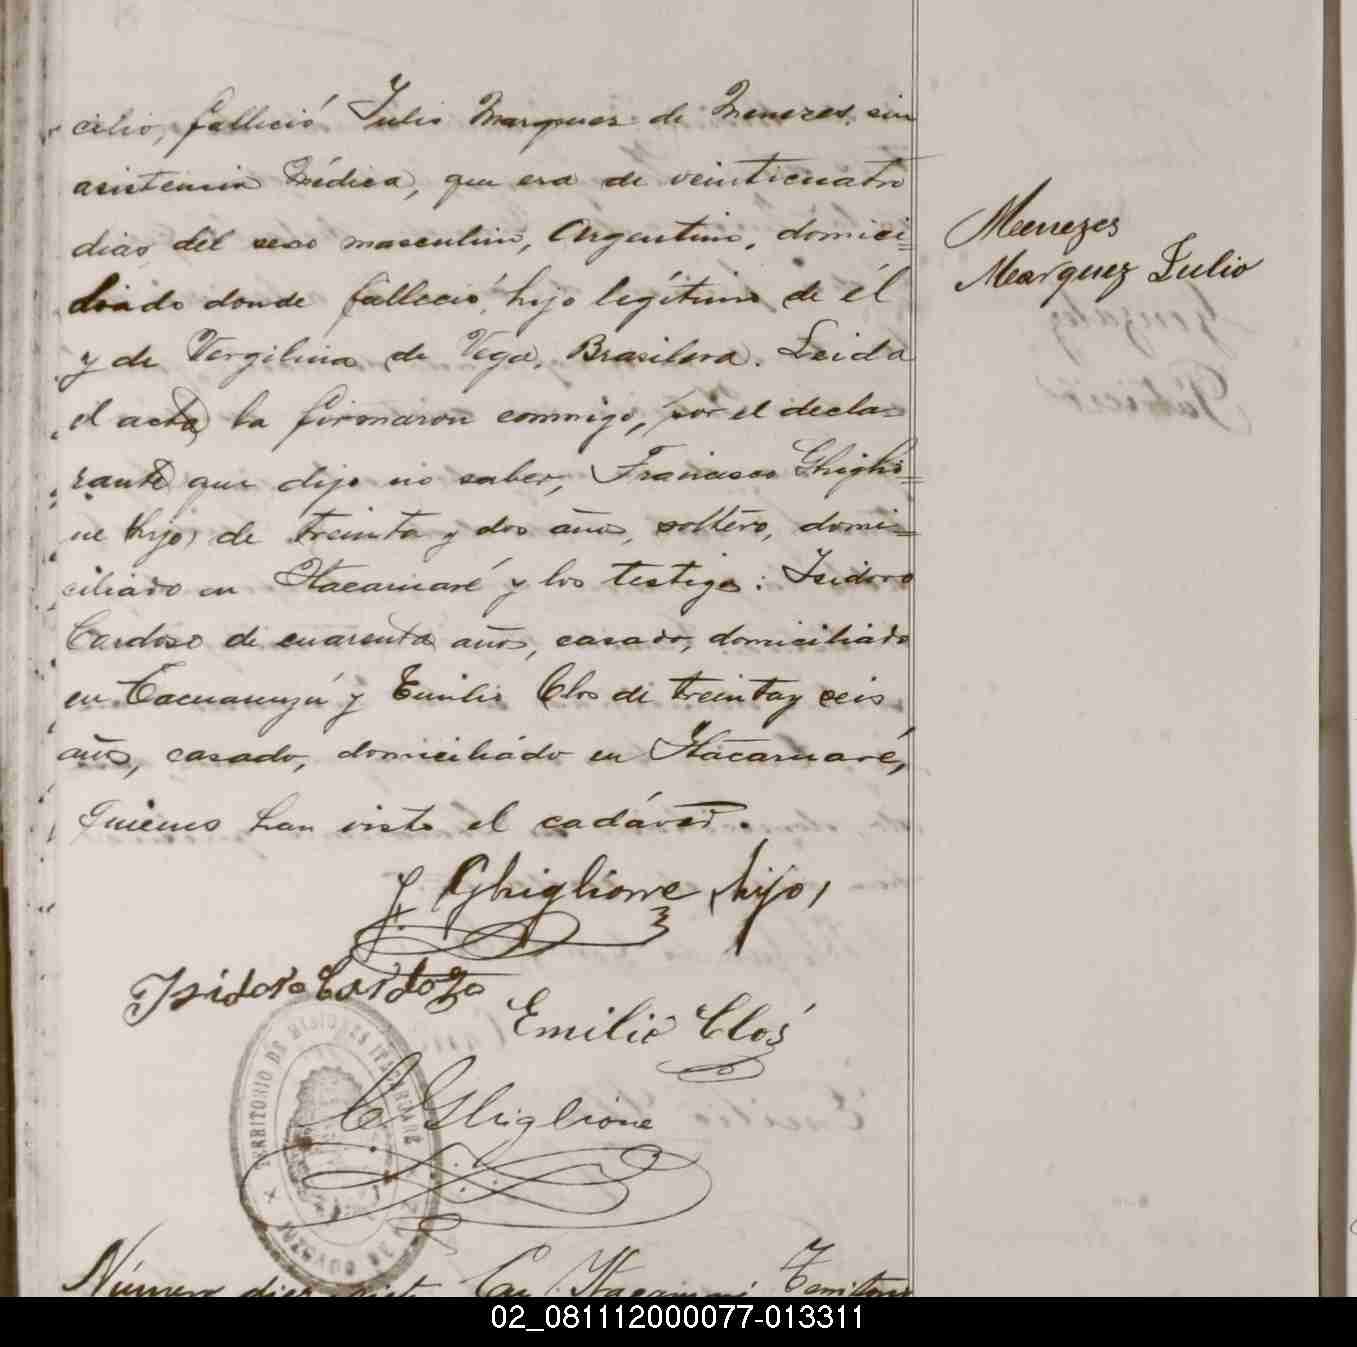 cilio, falleció Julio Marquez de Menezes, sin
asistencia médica, que era de veinticuatro
dias, del sexo masculino, Argentino, domici=
liado donde falleció, hijo legítimo de él
y de Vergilina de Vega, Brasilera. Leida
el acta, la firmaron conmigo, por el decla=
rante que dijo no saber, Francisco Ghiglio=
ne hijo, de treinta y dos años, soltero, domi=
ciliado en Itacaruaré y los testigos: Isidoro
Cardoso de cuarenta años, casado, domiciliado
en y Emilio Clos de treinta y seis
años, casado, domiciliado en Itacaruaré,
quienes han visto el cadáver.
Menezes
Marquez Julio
F. Ghiglione, hijo,
Isidoro Cardozo
Emilio Clos
C Ghiglione
TERRITORIO DE MISIONES ITACARUARÉ
Número En Itacaruaré Territorio
02_081112000077-013311